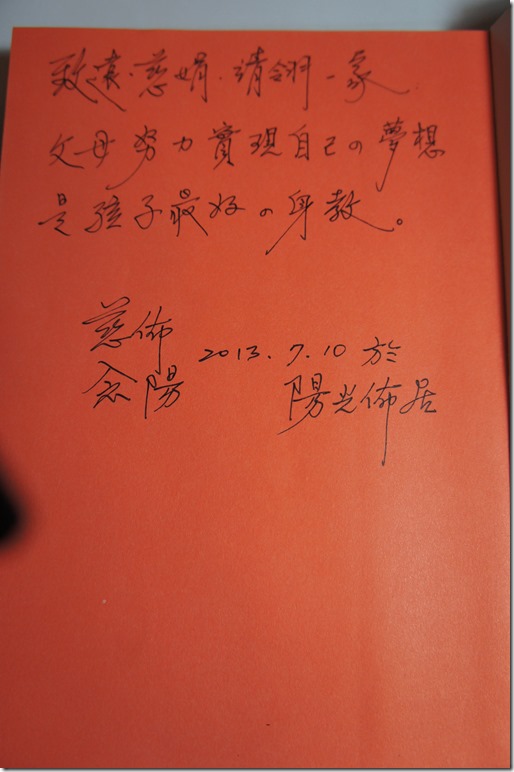 致遠.慈娟.靖翎一家
父母努力實現自己の夢想
是孩子最好の身教。
慈佈 2013.7.10 於
念陽 陽光佈居